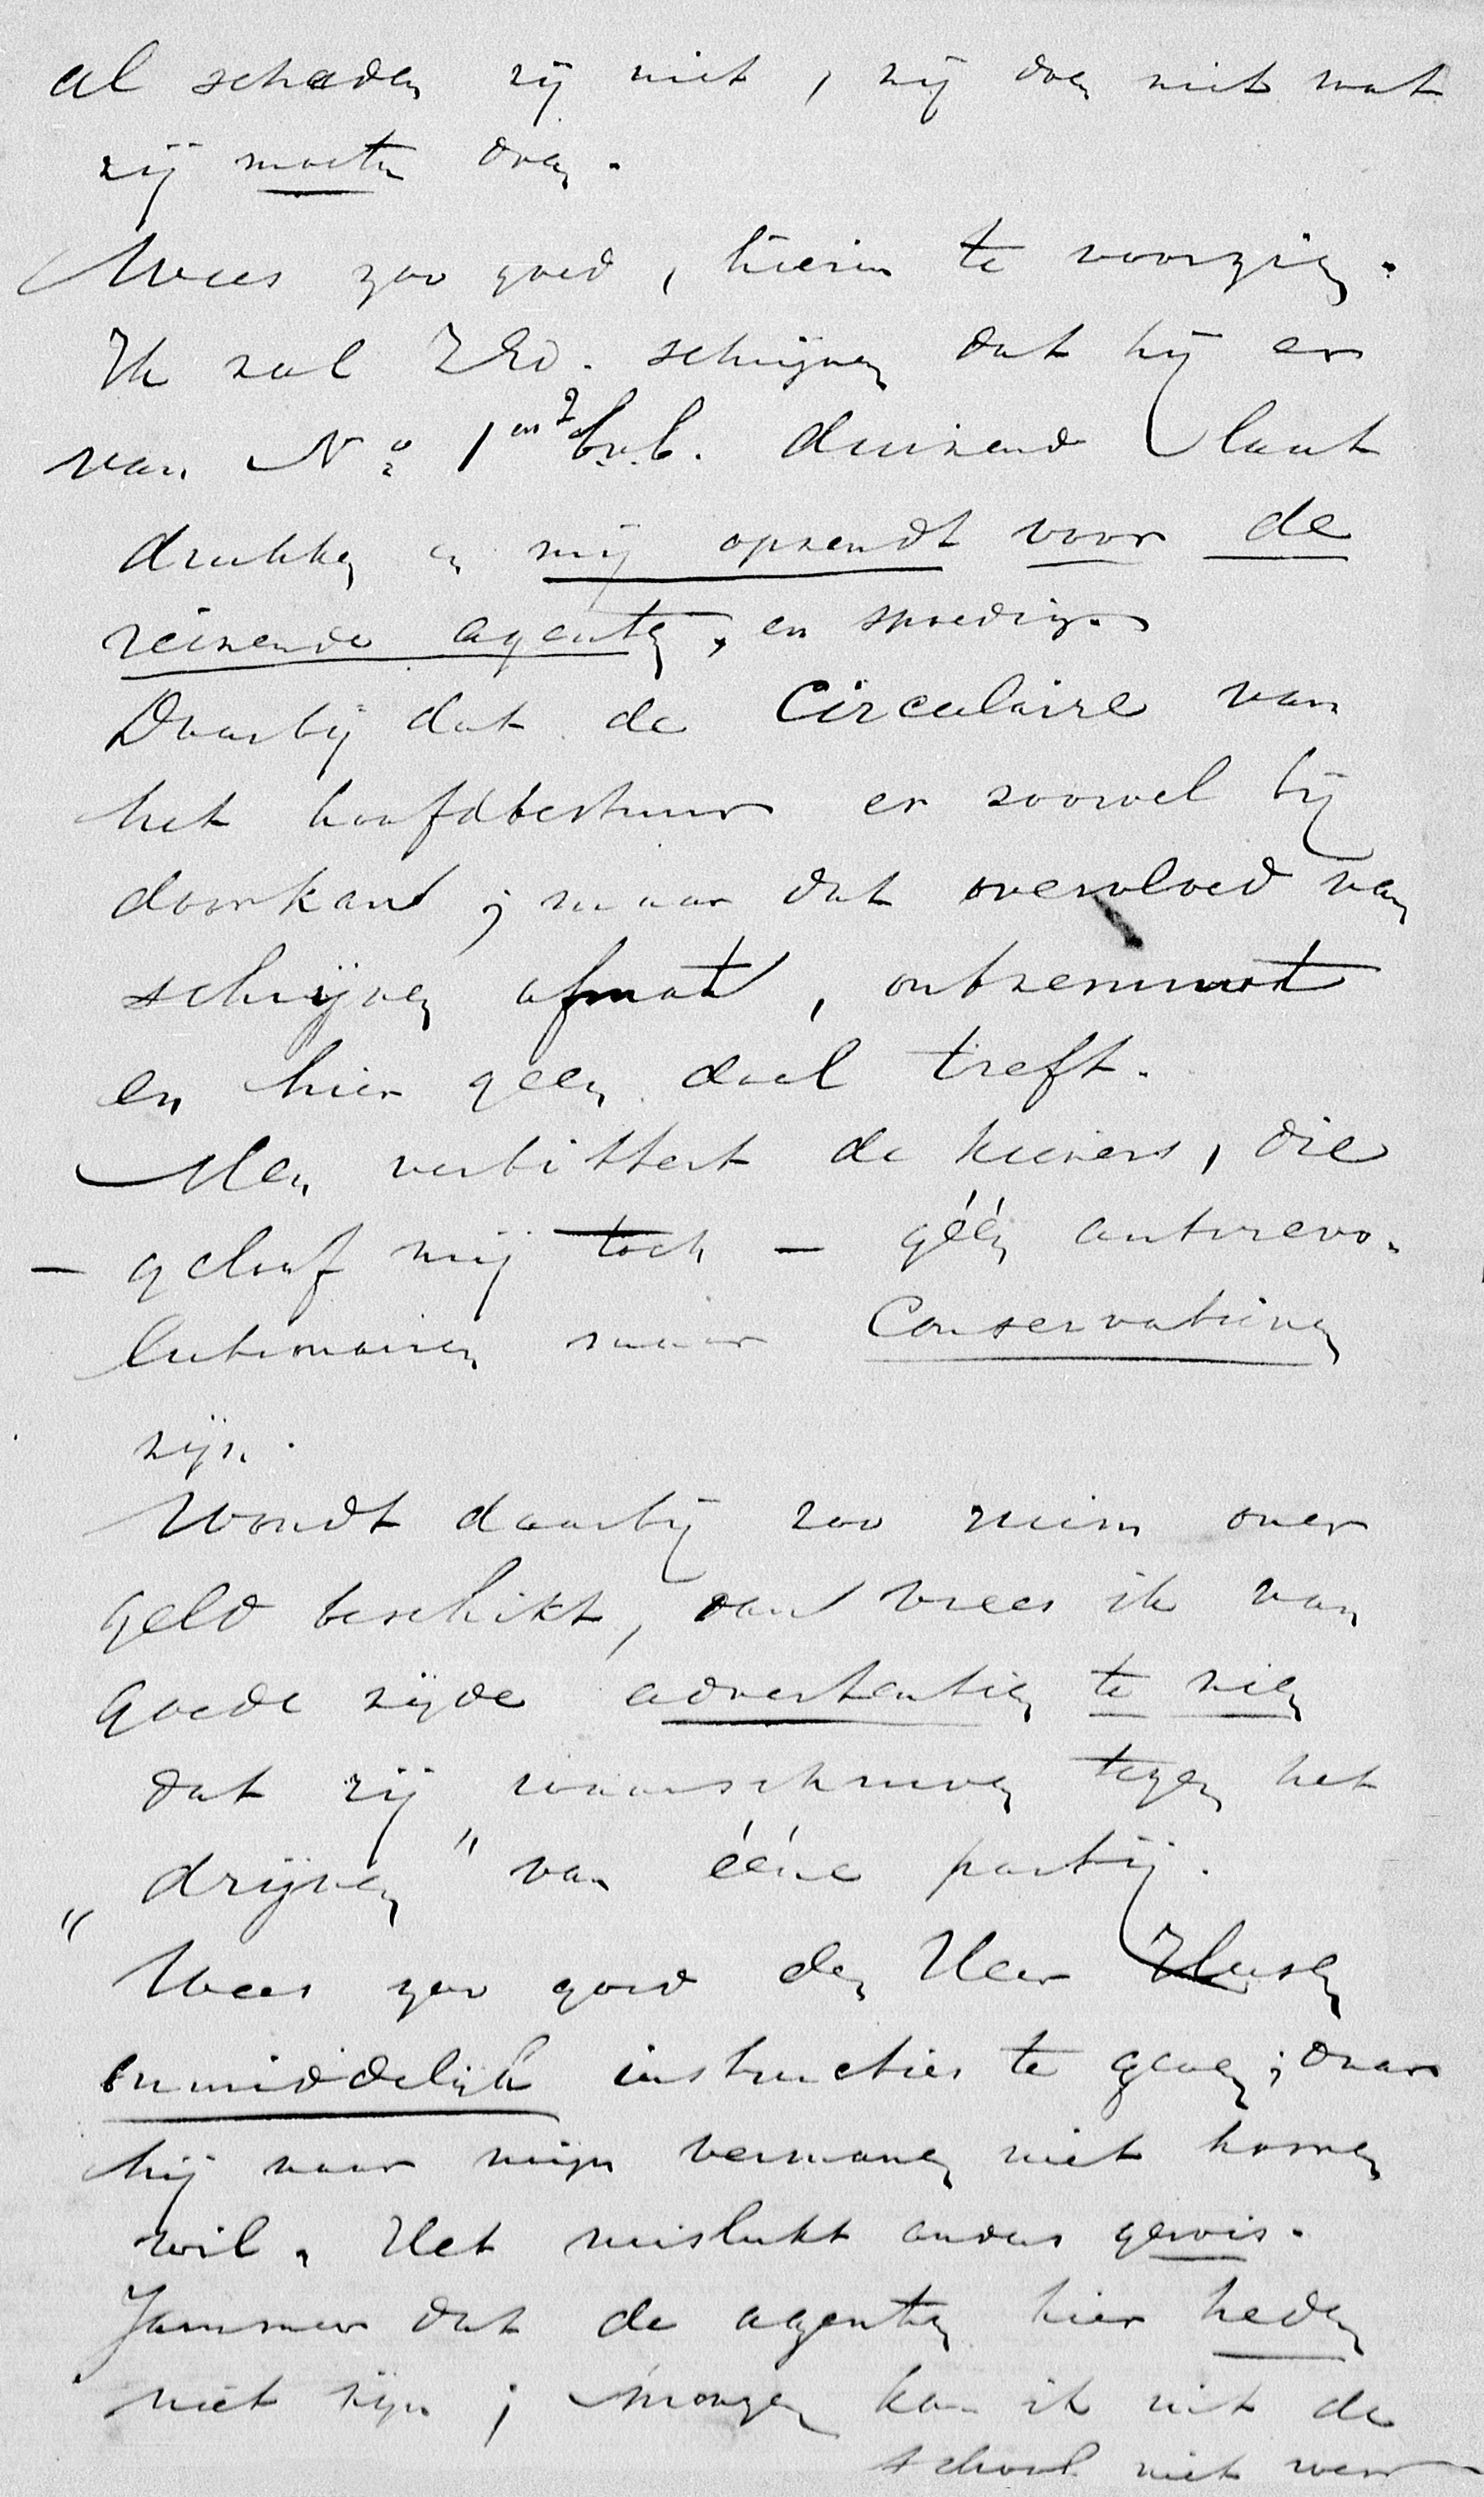 al schaden zij niet, zij doen niet wat
zij moeten doen.
Wees zoo goed, hierin te voorzien.
Ik zal ZEd. schrijven dat hij er
van No 1 en 2 b.v.b. duizend laat
drukken en mij opzendt voor de
reizende agenten, en spoedig.
Daarbij dat de Circulaire van
het hoofdbestuur er zoowel bij
door kan; maar dat overvloed van
schrijven afmat, ontzenuwt
en hier geen doel treft.
Men verbittert de kiezers, die
- geloof mij toch - géén antirevo-
lutionairen maar Conservatieven
zijn.
Wordt daarbij zoo ruim over
geld beschikt, dan vrees ik van
goede zijde advertentien te zien
dat zij waarschuwen tegen het
"drijven" van ééne partij.
Wees zoo goed den Heer
onmiddelijk instructies te geven; daar
hij naar mijn vermanen niet hooren
wil. Het mislukt anders gewis.
Jammer dat de agenten hier heden
niet zijn; morgen kan ik uit de
school niet weer